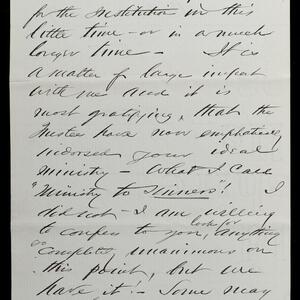 for the Institution in this
little time - or in a much
longer time - It is
a matter of large import
with me and it is
most gratifying, that the
Trustees have now emphatically
endorsed your ideal
Ministry - What I call
"Ministry to Sinners"! I
did not - I am willing
to confess to you, look for anything
so complete, unanimous on
this point, but we
have it! - Some may